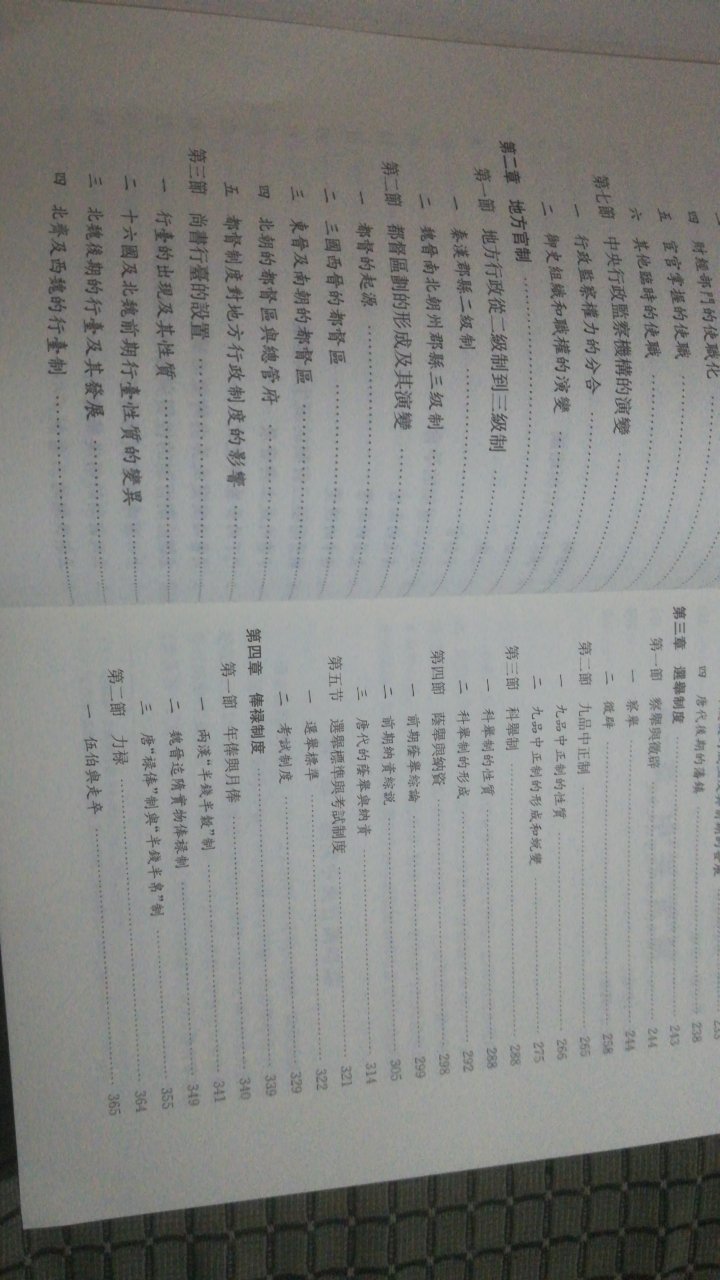 四 財經部門的使職化
五 宦官掌握的使職
六 其他臨時的使職
第七節 中央行政監察機構的演變
一 行政監察權力的分合
二 御史組織和職權的演變
第二章 地方官制
第一節 地方行政從二級制到三級制
一 秦漢郡縣二級制
二 魏晉南北朝州郡縣三級制
第二節 都督區劃的形成及其演變
一 都督的起源
二 三國西晉的都督區
三 東晉及南朝的都督區
四 北朝的都督區與總管府
五 都督制度對地方行政制度的影響
第三節 尚書行臺的設置
一 行臺的出現及其性質
二 十六國及北魏前期行臺性質的變異
三 北魏後期的行臺及其發展
四 北齊及西魏的行臺制
四 唐代後期的藩鎮 238
第三章 選舉制度 243
第一節 察舉與徵辟 244
一 察舉 244
二 徵辟 258
第二節 九品中正制 265
一 九品中正制的性質 266
二 九品中正制的形成和蛻變 275
第三節 科舉制 288
一 科舉制的性質 288
二 科舉制的形成 292
第四節 蔭舉與納資 298
一 前期蔭舉綜論 299
二 前期納貲綜說 305
三 唐代的蔭舉與納貲 314
第五节 選舉標準與考試制度 321
一 選舉標準 322
二 考試制度 329
第四章 俸禄制度 339
第一節 年俸與月俸 340
一 兩漢“半錢半穀”制 341
二 魏晉迄隋實物俸禄制 349
三 唐“禄俸”制與“半錢半帛”制 355
第二節 力禄 364
一 伍伯與走卒 365